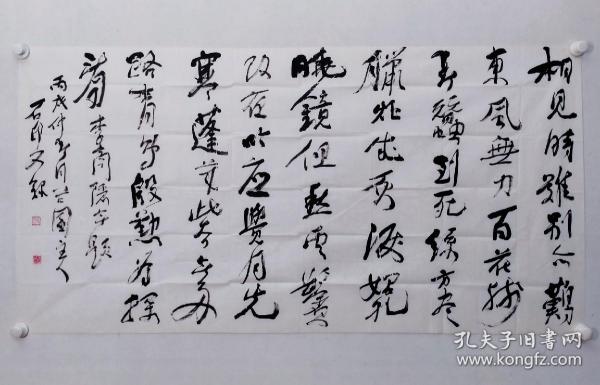 相見時難別亦難
東風無力百花殘
春蠶到死絲方盡
蠟炬成灰淚始乾
曉鏡但愁雲鬢
改夜吟應覺月光
寒蓬山此去無多
路青鳥殷懃為探
看李商隱無題
丙戌仲春月
孔夫子旧书网
www.kongfz.com